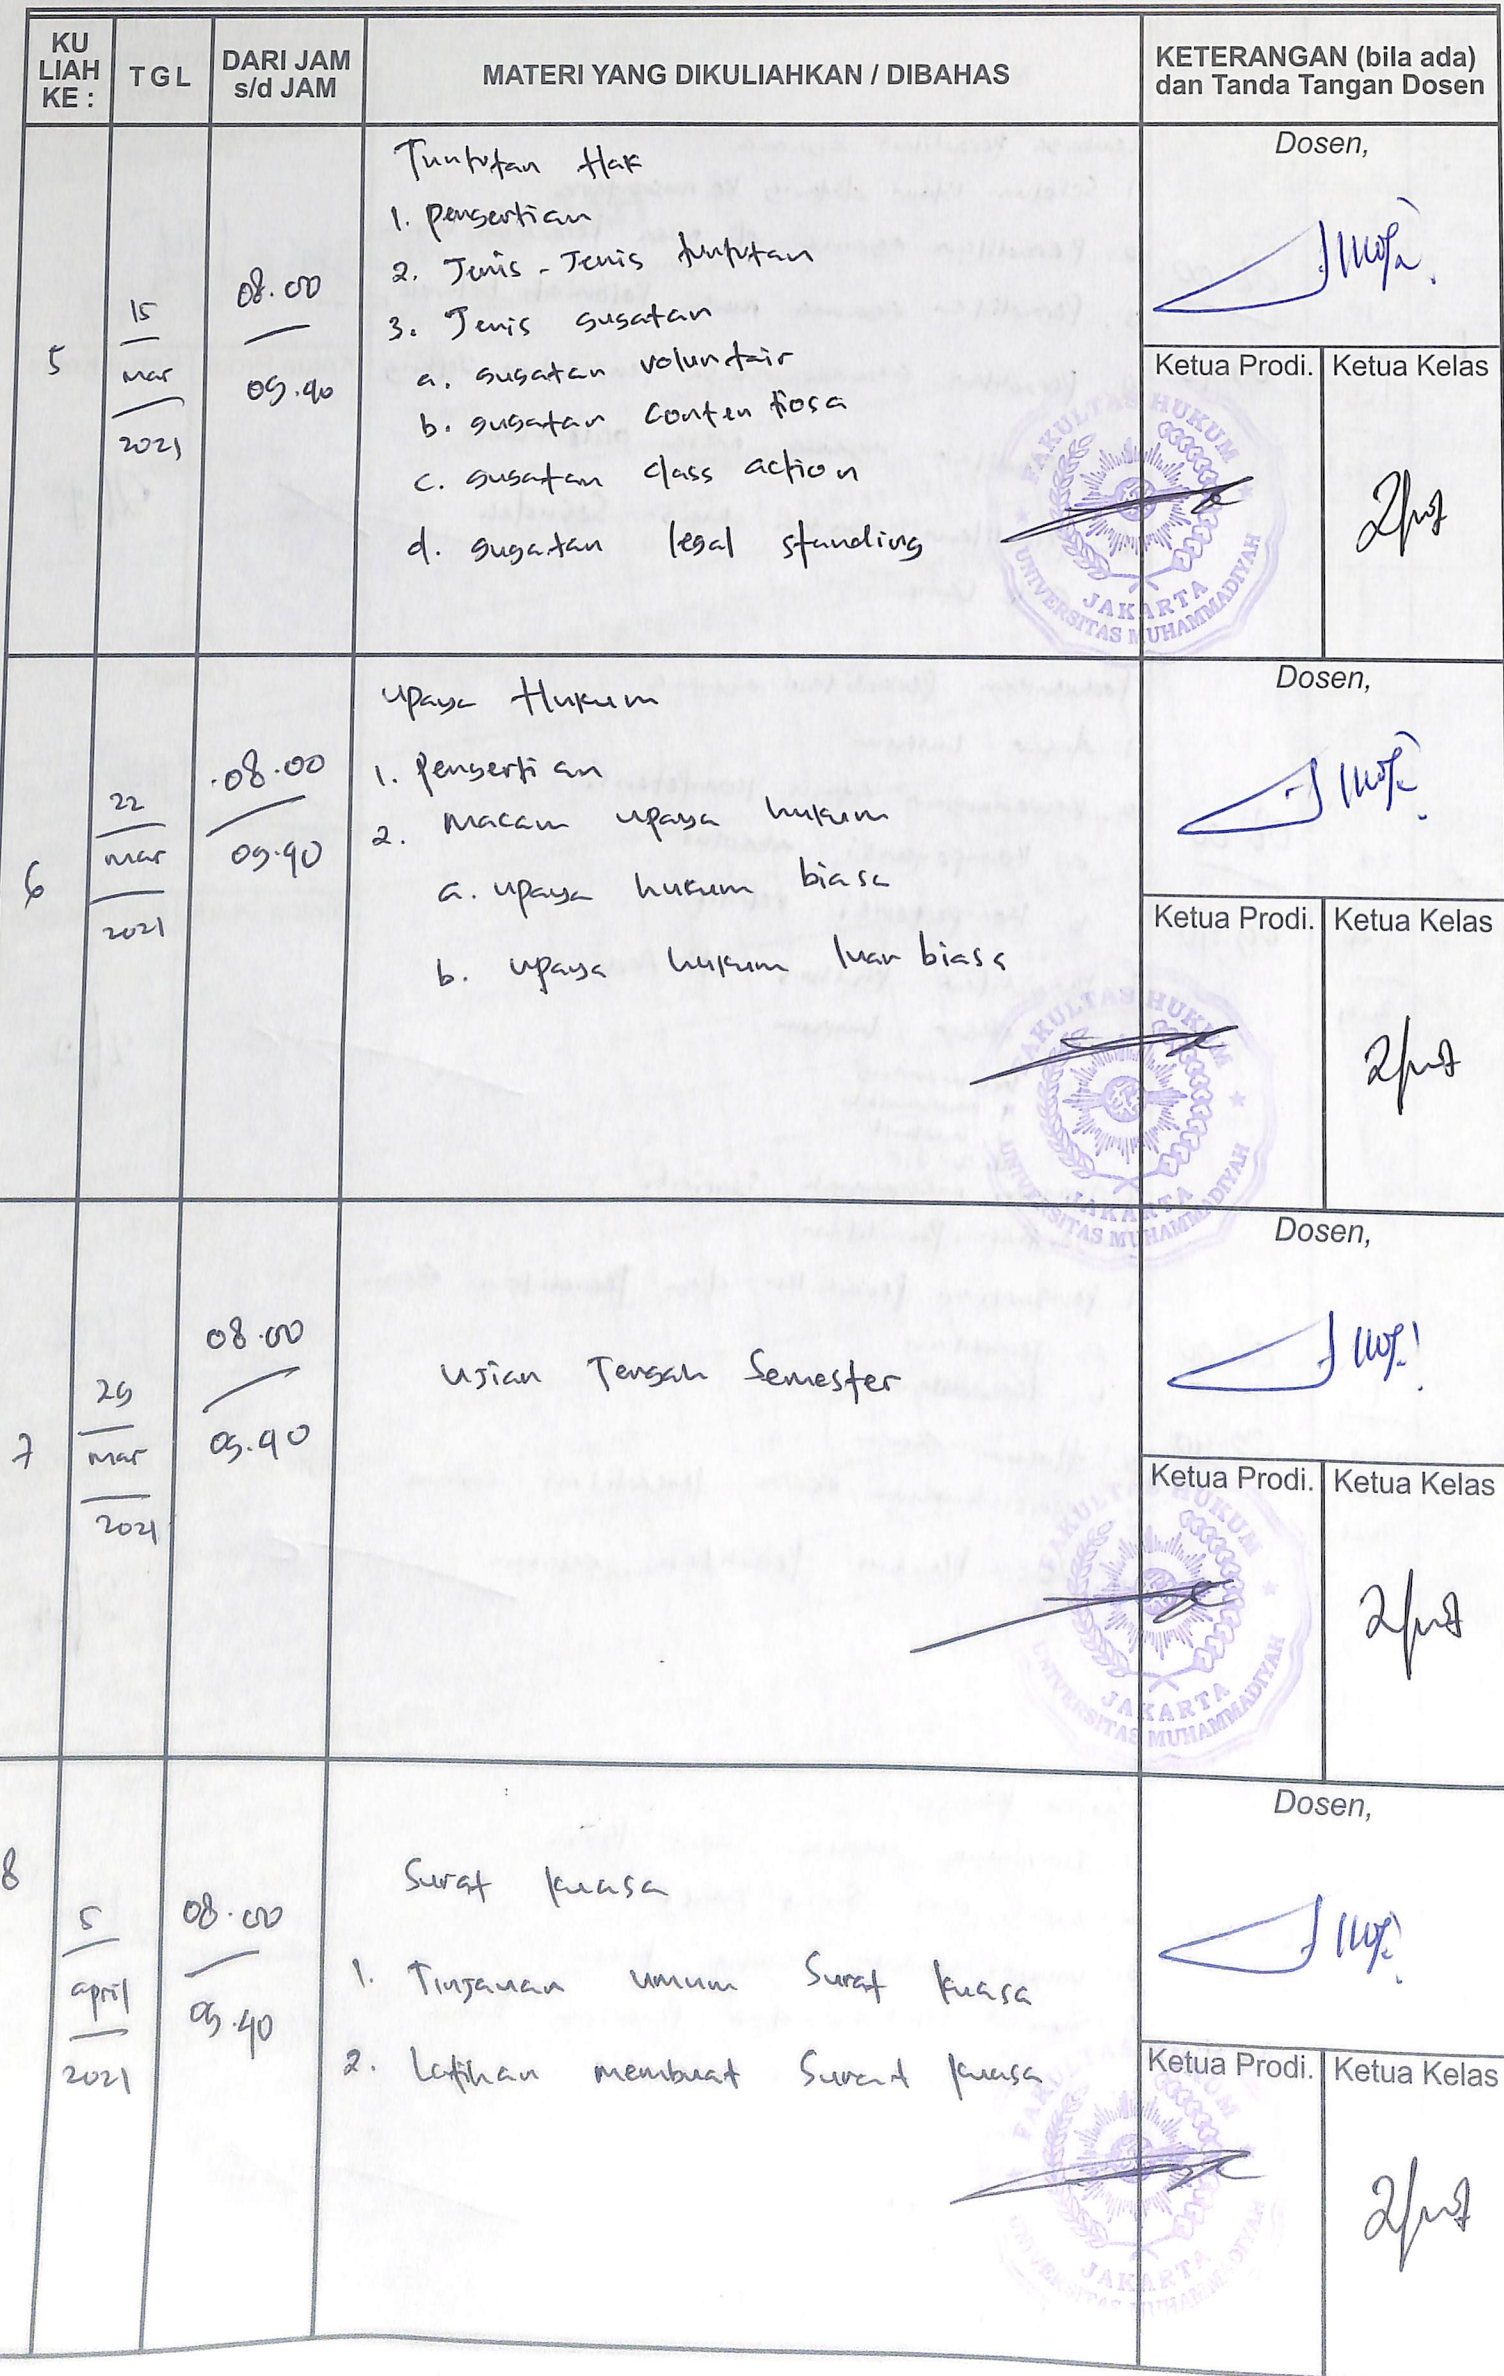 KU LIAH KE :
TGL
DARI JAM s/d JAM
MATERI YANG DIKULIAHKAN / DIBAHAS
KETERANGAN (bila ada) dan Tanda Tangan Dosen
5
15
Mar
2021
08.00
09.40
Tuntutan Hak
1. pengertian
2. Jenis - Jenis tuntutan
3. Jenis gugatan
a. gugatan voluntair
b. gugatan contentiosa
c. gugatan class action
d. gugatan legal standing
Dosen,
Ketua Prodi.
Ketua Kelas
FAKULTAS HUKUM
JAKARTA
UNIVERSITAS MUHAMMADIYAH
6
22
Mar
2021
08.00
09.40
Upaya Hukum
1. pengertian
2. Macam upaya hukum
a. upaya hukum biasa
b. upaya hukum luar biasa
Dosen,
Ketua Prodi.
Ketua Kelas
FAKULTAS HUKUM
JAKARTA
UNIVERSITAS MUHAMMADIYAH
7
29
Mar
2021
08.00
09.40
Ujian Tengah Semester
Dosen,
Ketua Prodi.
Ketua Kelas
FAKULTAS HUKUM
JAKARTA
UNIVERSITAS MUHAMMADIYAH
8
5
april
2021
08.00
09.40
Surat kuasa
1. Tinjauan umum Surat kuasa
2. Latihan membuat Surat kuasa
Dosen,
Ketua Prodi.
Ketua Kelas
FAKULTAS HUKUM
JAKARTA
UNIVERSITAS MUHAMMADIYAH